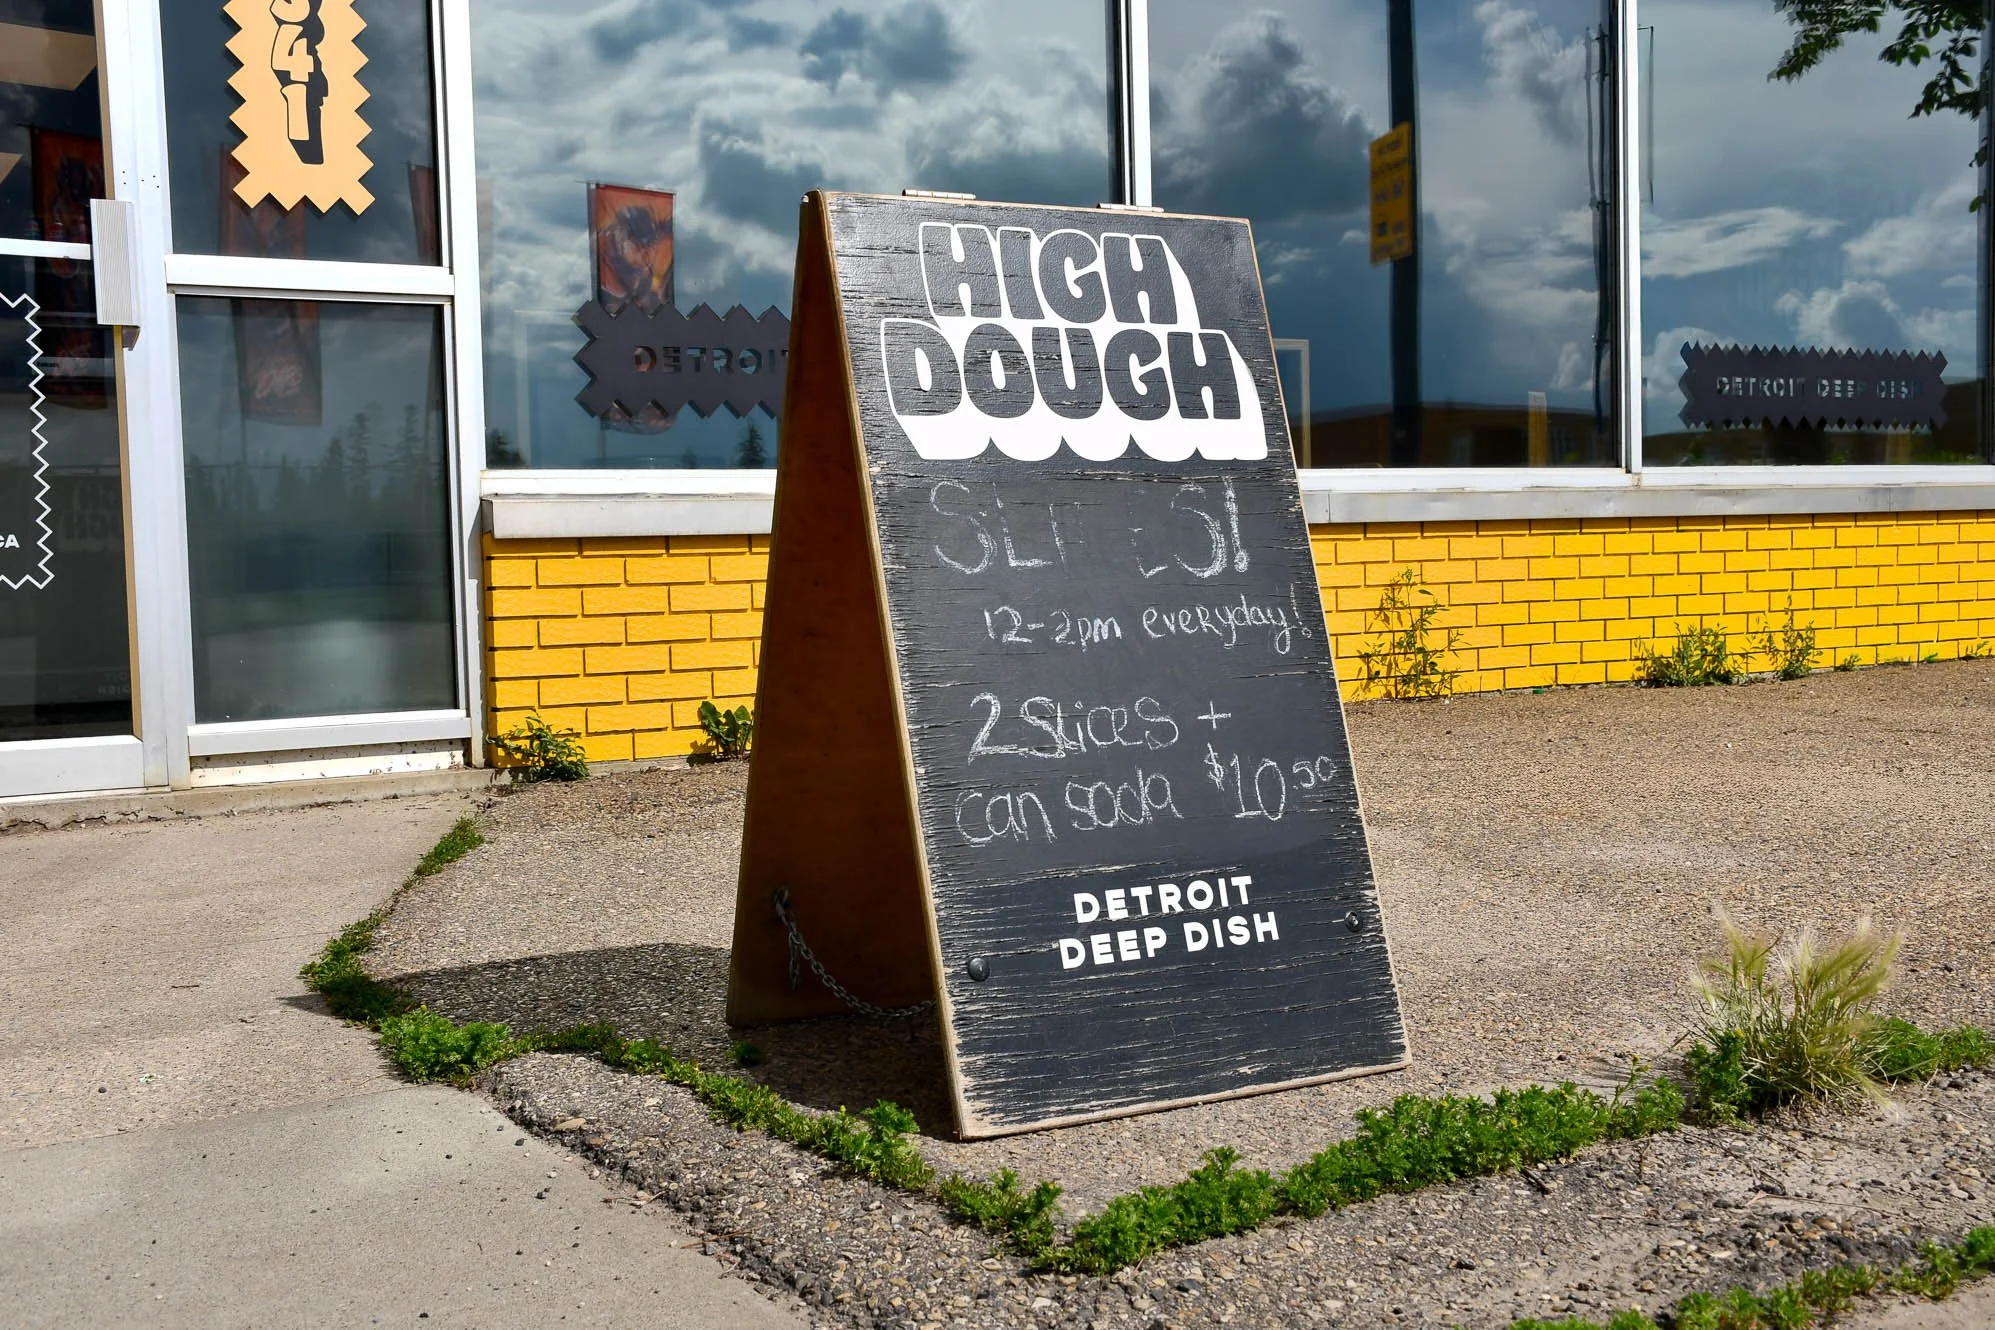 HIGH
DOUGH
SLICES!
12-2pm everyday!
2 Slices +
can soda $10.50
DETROIT
DEEP DISH
DETROIT
DETROIT DEEP DISH
CA